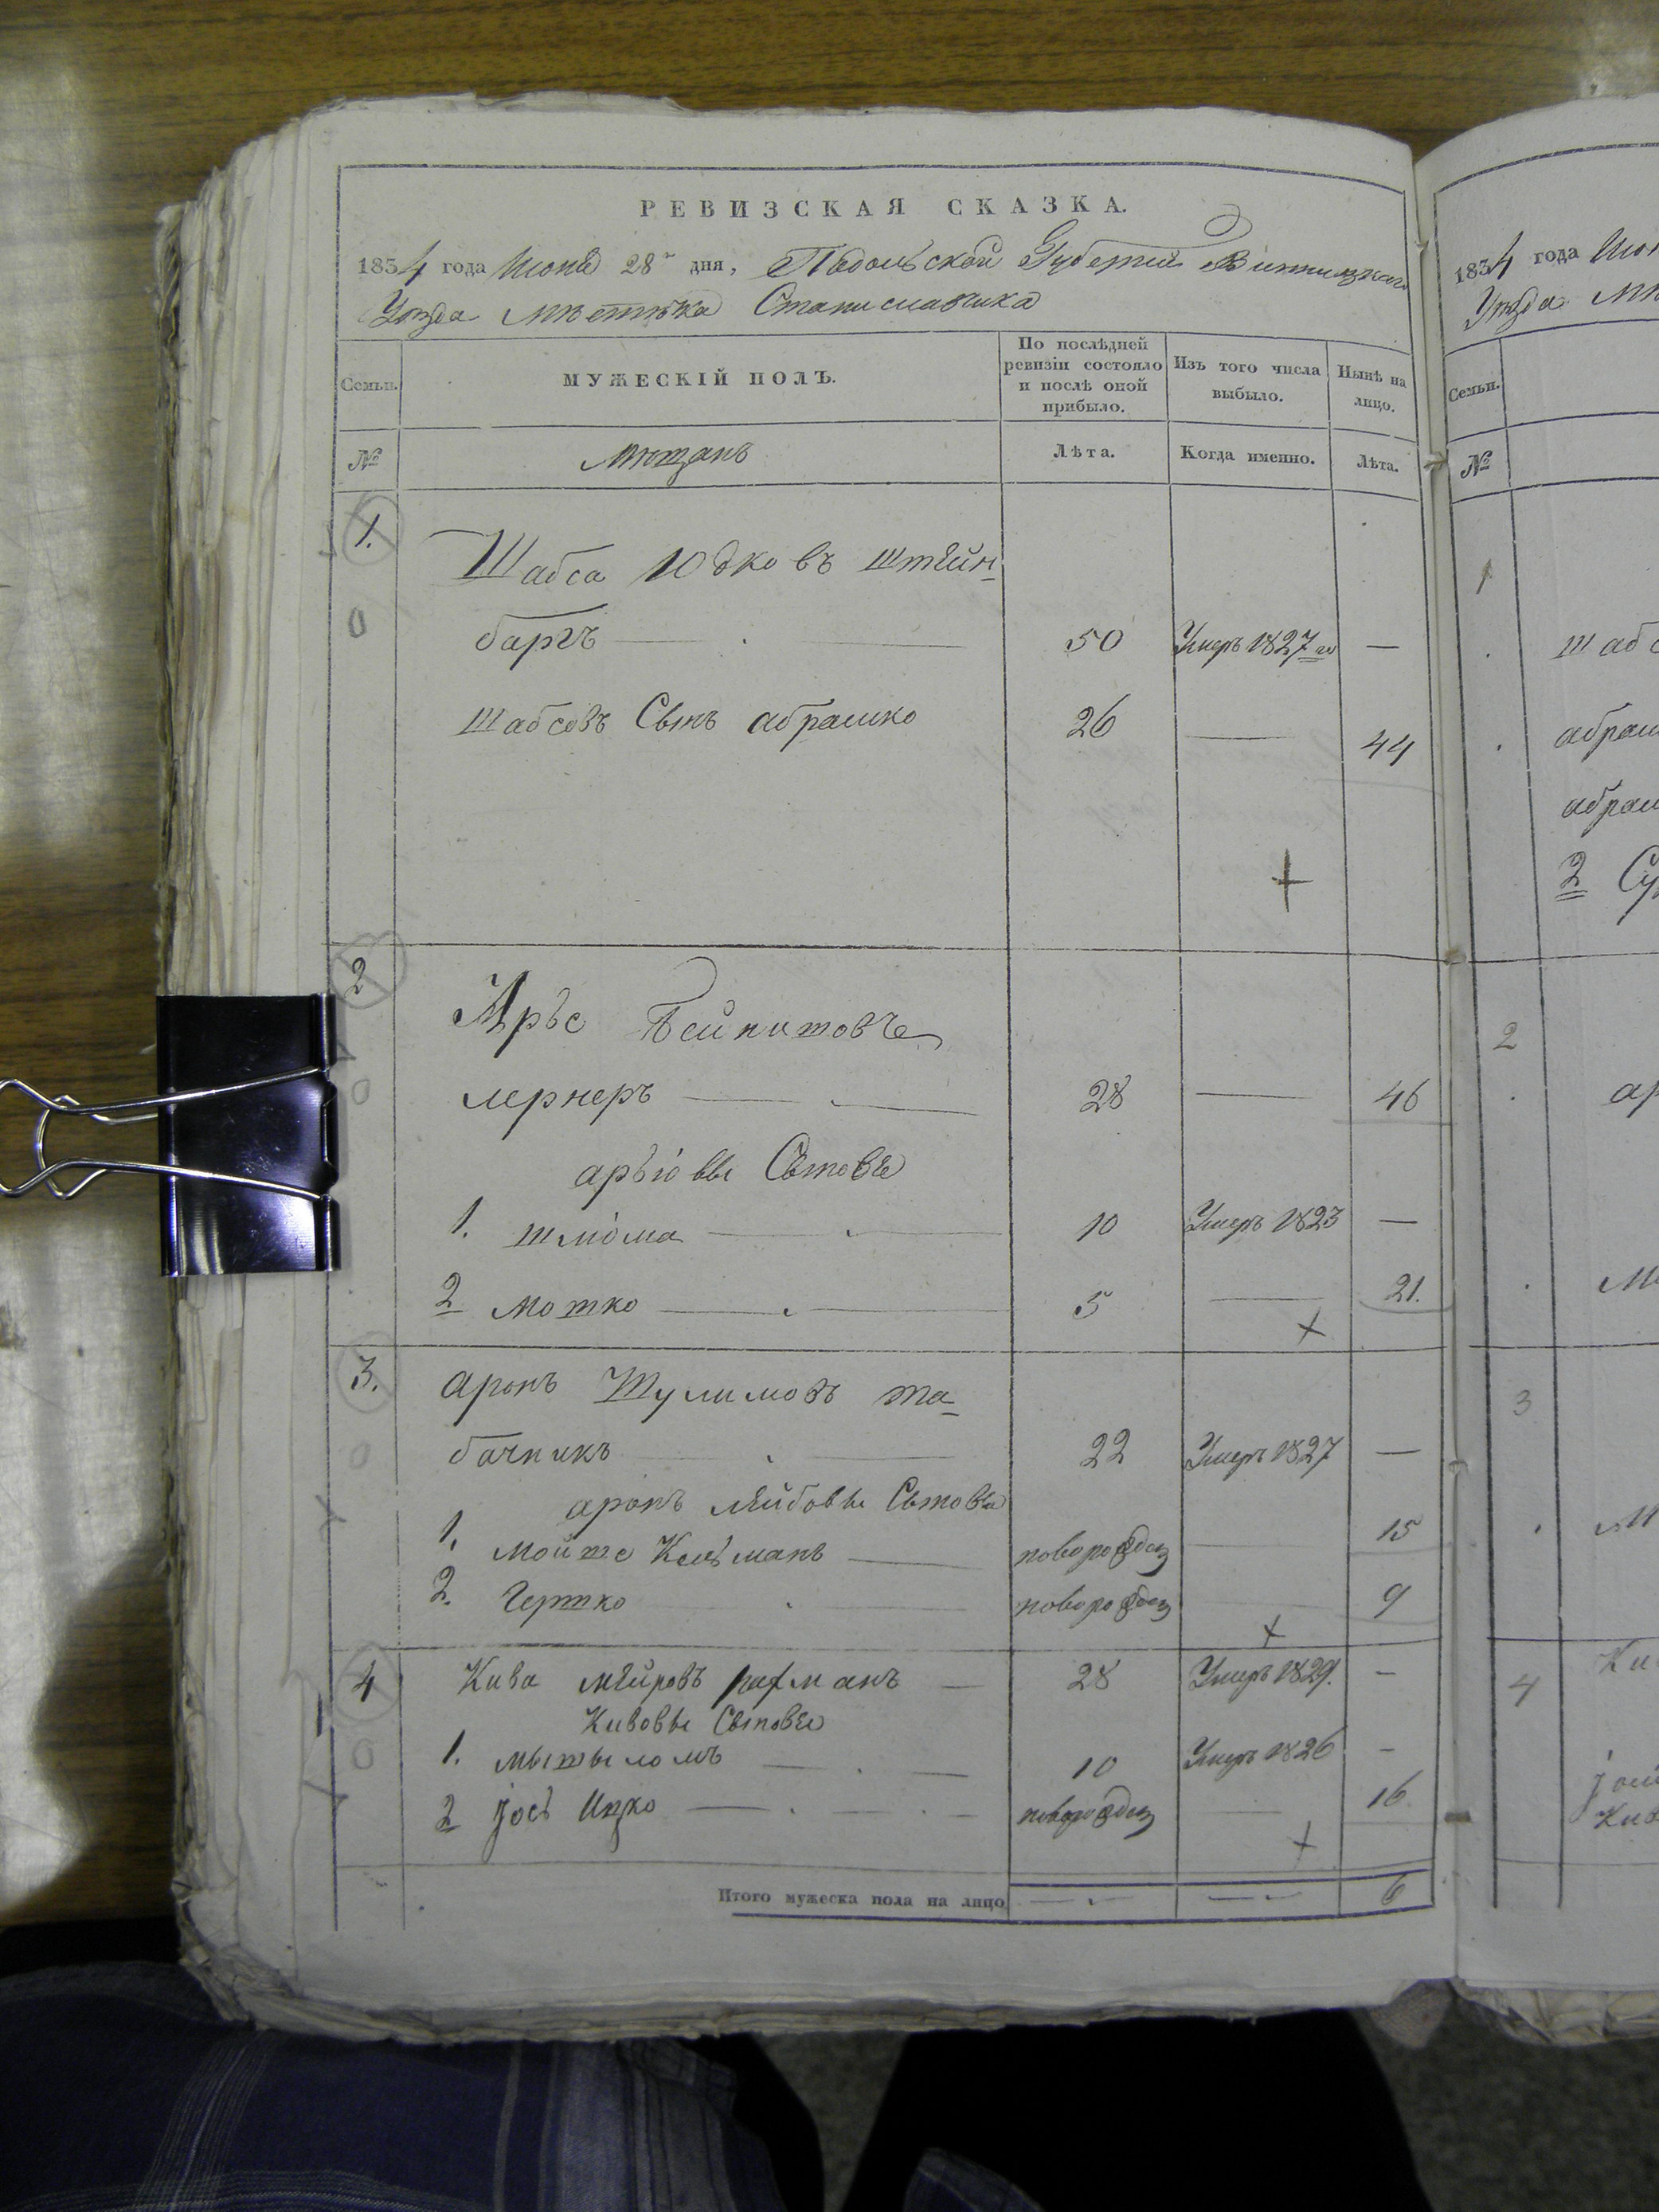 РЕВИЗСКАЯ СКАЗКА.
1834 года Июня 28 дня, Подольской Губерніи Винницкаго
Уѣзда мѣстечка Станиславчика
Семьи.
МУЖЕСКІЙ ПОЛЪ.
По послѣдней ревизіи состояло и послѣ оной прибыло.
Изъ того числа выбыло.
Нынѣ на лицо.
№
мѣщанъ
Лѣта.
Когда именно.
Лѣта.
1.
Шабса Юдковъ штейн-
баргъ 50 Умеръ 1827 го —
Шабсовъ Сынъ абрамко 26 — 44
2
Аръе Бейнишовъ
лернеръ 28 — 46
аръіовы Сыновья
1. шлiома 10 Умеръ 1823 —
2 мошко 5 — 21.
3.
аронъ Шулимовъ та-
бачникъ 22 Умеръ 1827 —
аронъ лейбовы Сыновья
1. мойше Кельманъ новорожден — 15
2. Гершко новорожден — 9
4
Кива мейровъ 28 Умеръ 1829. —
Кивовы Сыновья
1. 10 Умеръ 1826 —
2 Іось Ицко новорожден — 16
Итого мужеска пола на лицо 6
1834 года Ию
Уѣзда мѣ
Семьи.
№
1
шабс
абрам
абрам
2 Су
2
ар
3
4
Ки